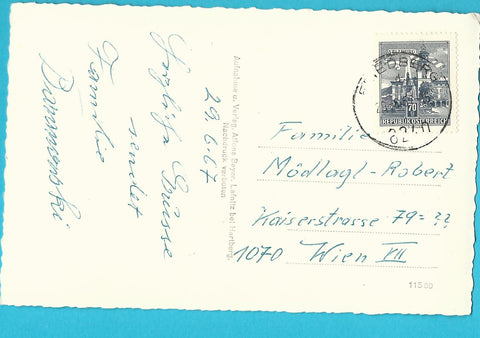 29.6.67
Herzliche Grüsse
sendet
Familie
Aufnahme u. Verlag Alfons Beyer, Lafnitz bei Hartberg.
Nachdruck verboten
70
REPUBLIK ÖSTERREICH
8240
Familie
Mödlagl-Robert
Kaiserstrasse 79=??
1070 Wien VII